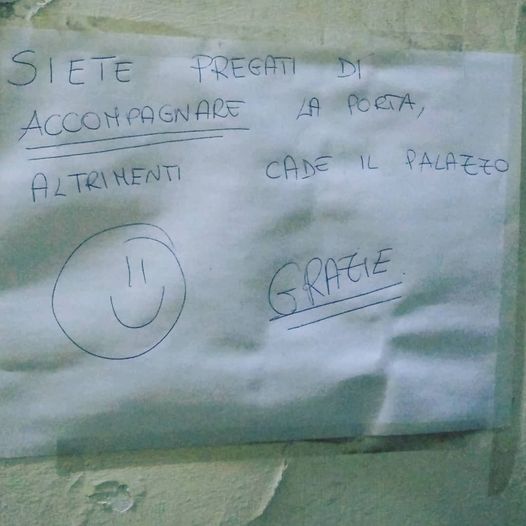 SIETE PREGATI DI
ACCOMPAGNARE LA PORTA,
ALTRIMENTI CADE IL PALAZZO
GRAZIE.